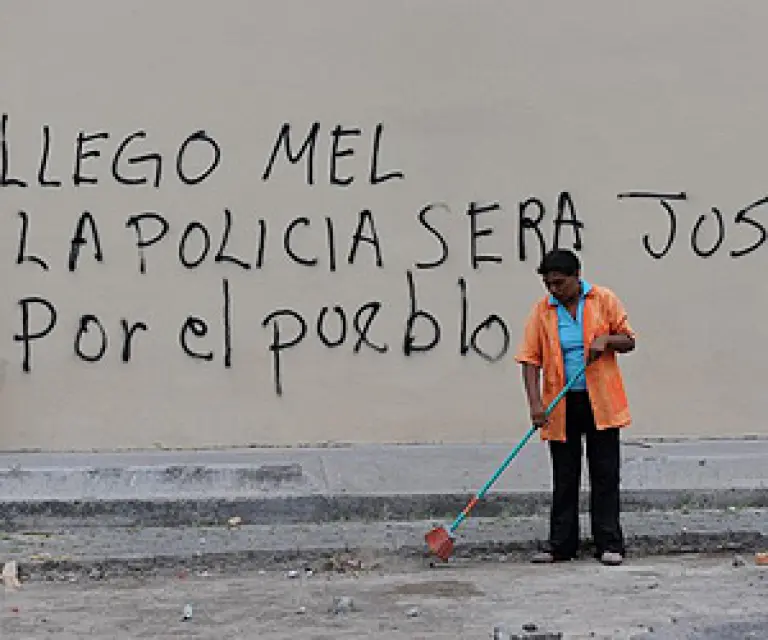 LLEGO MEL
LA POLICIA SERA JOS
Por el pueblo